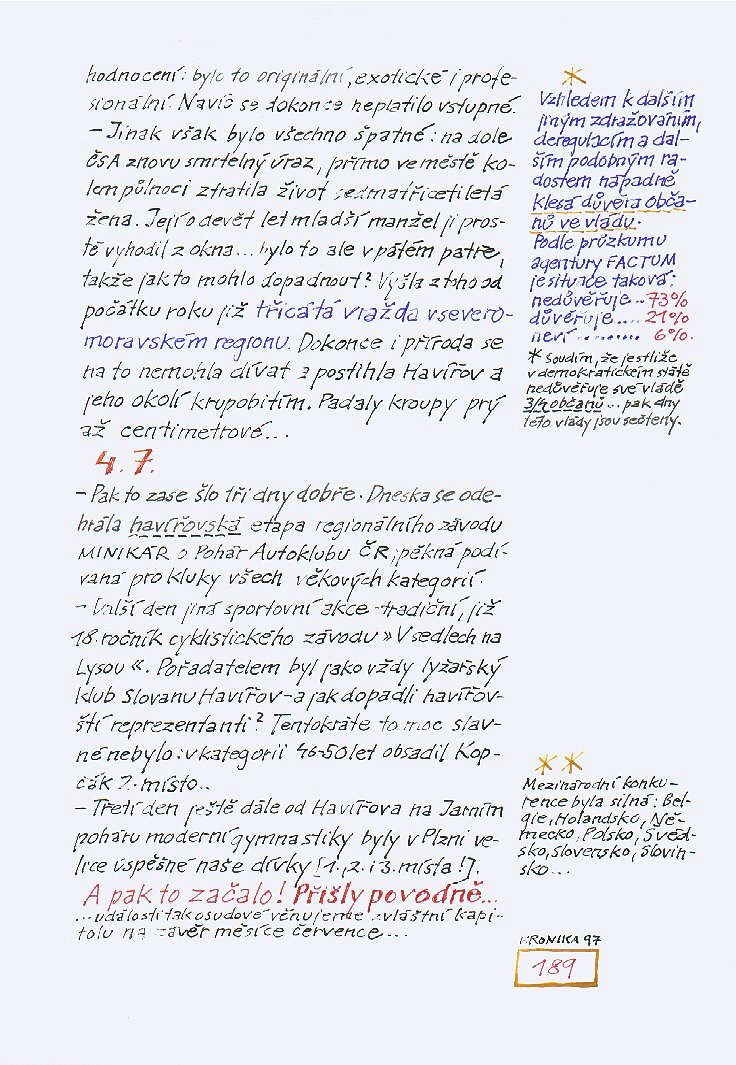 hodnocení: bylo to originální, exotické i profe-
sionální. Navíc se dokonce neplatilo vstupné.
- Jinak však bylo všechno špatné: na dole
ČSA znovu smrtelný úraz, přímo ve městě ko-
lem půlnoci ztratila život sedmatřicetiletá
žena. Její o devět let mladší manžel ji pros-
tě vyhodil z okna... bylo to ale v pátém patře,
takže jak to mohlo dopadnout? Vyšla z toho od
počátku roku již třicátá vražda v severo-
moravském regionu. Dokonce i příroda se
na to nemohla dívat a postihla Havířov a
jeho okolí krupobitím. Padaly kroupy prý
až centimetrové...
4.7.
- Pak to zase šlo tři dny dobře. Dneska se ode-
hrála havířovská etapa regionálního závodu
MINIKÁR o Pohár Autoklubu ČR; pěkná podí-
vaná pro kluky všech věkových kategorií.
- Další den jiná sportovní akce - tradiční, již
18. ročník cyklistického závodu » V sedlech na
Lysou «. Pořadatelem byl jako vždy lyžařský
klub Slovanu Havířov - a jak dopadli havířov-
ští reprezentanti? Tentokráte to moc slav-
né nebylo: v kategorii 46-50 let obsadil Kop-
čák 2. místo..
- Třetí den ještě dále od Havířova na Jarním
poháru moderní gymnastiky byly v Plzni ve-
lice úspěšné naše dívky [1., 2. i 3. místa!].
A pak to začalo! Přišly povodně...
...události tak osudové věnujeme zvláštní kapi-
tolu na závěr měsíce července...
*
Vzhledem k dalším
jiným zdražováním,
deregulacím a dal-
ším podobným ra-
dostem nápadně
klesá důvěra obča-
nů ve vládu.
Podle průzkumu
agentury FACTUM
je situace taková:
nedůvěřuje .. 73%
důvěřuje .... 21%
neví ........ 6%.
* Soudím, že jestliže
v demokratickém státě
nedůvěřuje své vládě
3/4 občanů ... pak dny
této vlády jsou sečteny.
* *
Mezinárodní konku-
rence byla silná: Bel-
gie, Holandsko, Ně-
mecko, Polsko, Švéd-
sko, Slovensko, Slovin-
sko...
KRONIKA 97
189